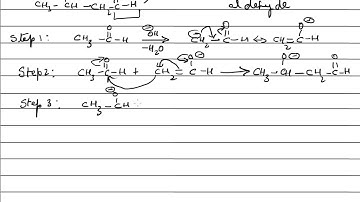 CH3 - CH - CH2 - C - H aldehyde
Step 1: CH3 - C - H OH -H2O CH2 - C - H ↔ CH2 = C - H
Step 2: CH3 - C - H + CH2 = C - H → CH3 - CH - CH2 - C - H
Step 3: CH3 - CH